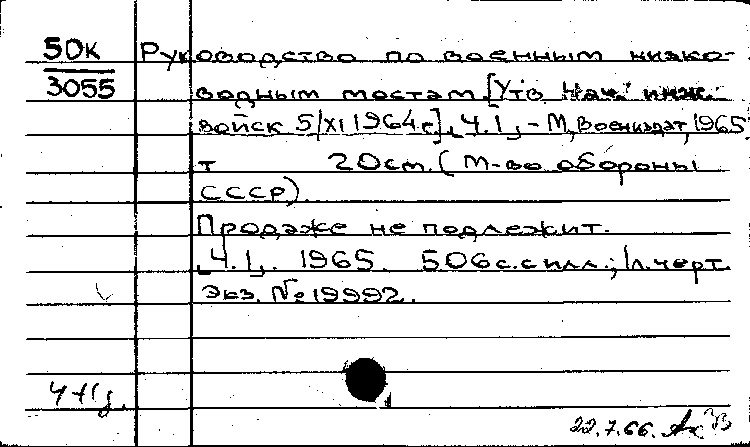 50К Руководство по военным низко-
3055 водным мостам [Утв Нач. инж.
войск 5/XI 1964 г.], Ч. I, - М, Воениздат, 1965
т 20см. (М-во обороны
СССР).
Продаже не подлежит.
Ч. I. 1965. 506 с. с илл.; 1 л. черт.
Экз. № 19992.
22.7.66.